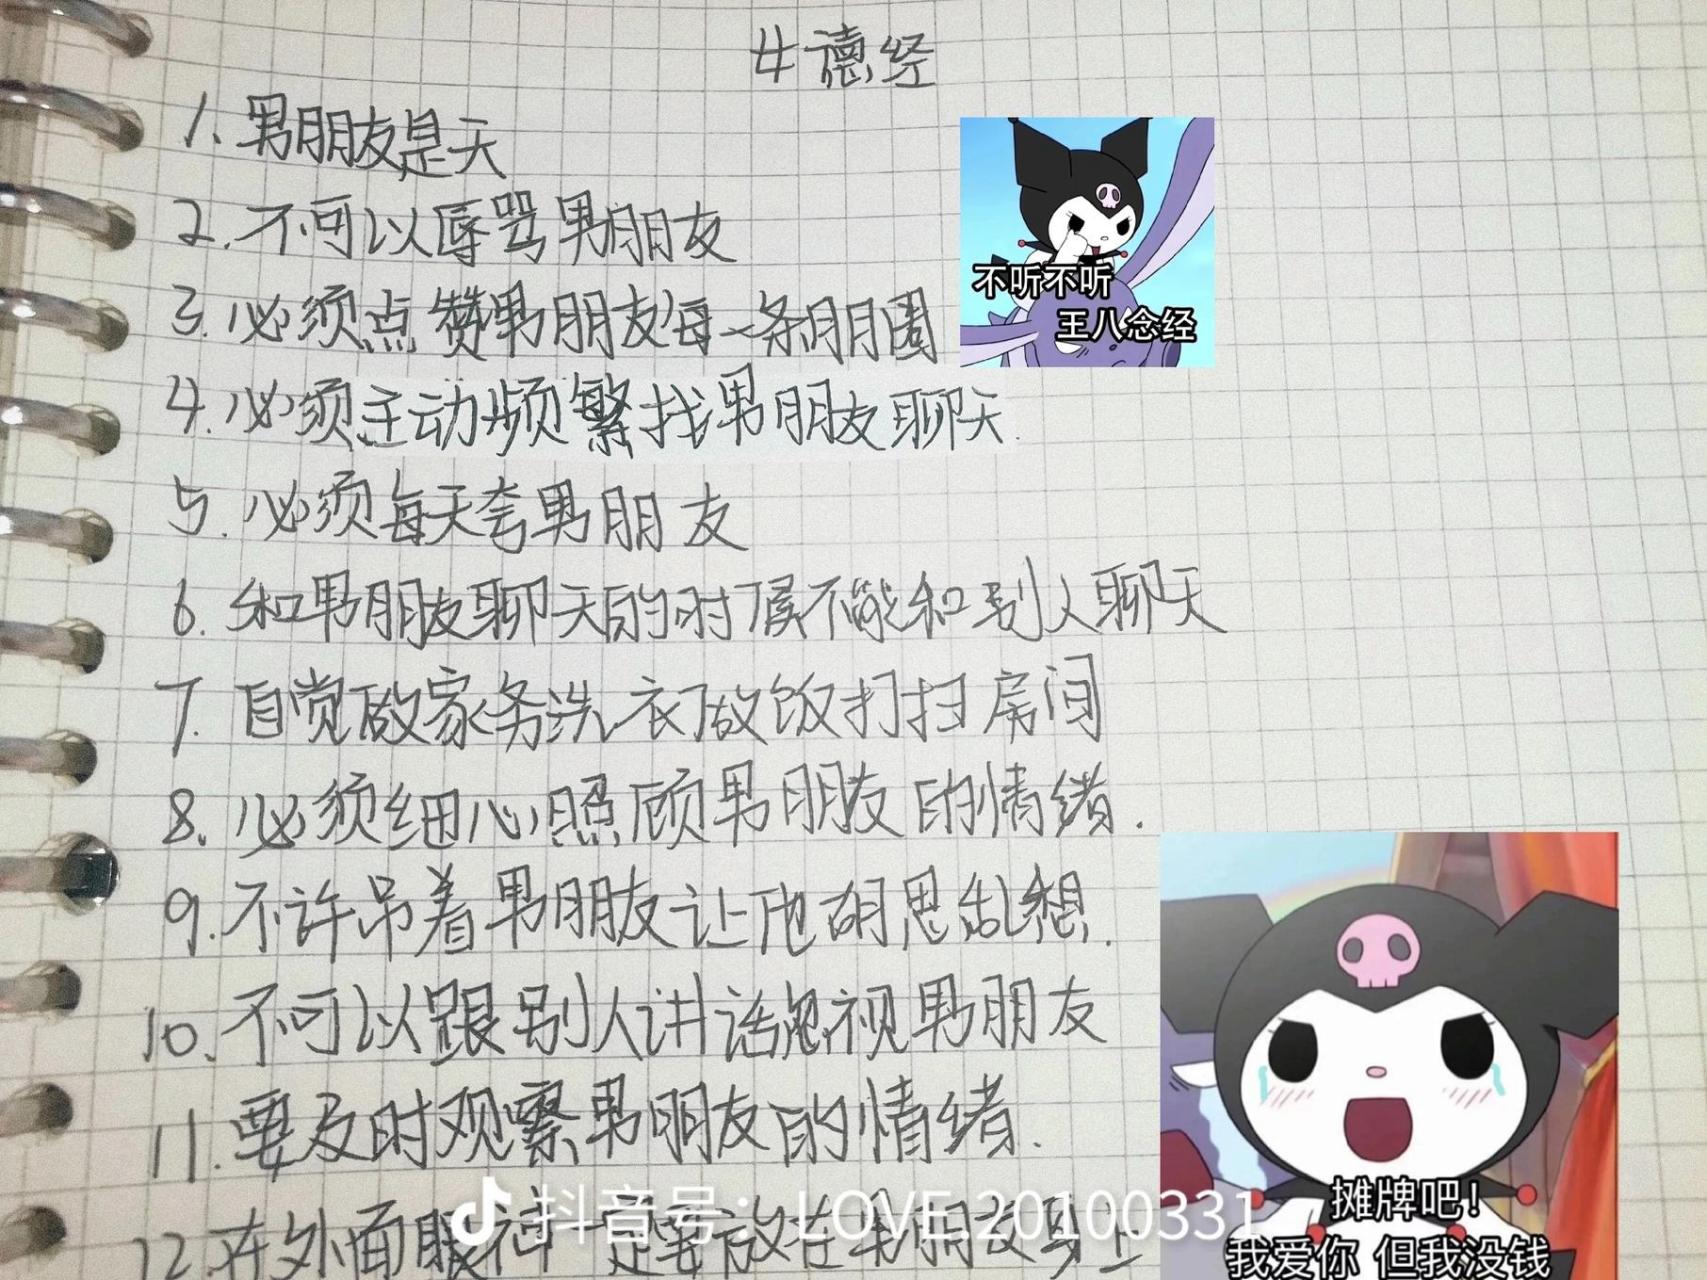 女德经
1、男朋友是天
2.不可以辱骂男朋友
3.必须点赞男朋友每一条朋圈
不听不听
王八念经
4.必须主动频繁找男朋友聊天.
5.必须每天夸男朋友
6.和男朋友聊天的时候不能和别人聊天
7.自觉做家务洗衣做饭打扫房间
8.必须细心照顾男朋友的情绪.
9.不许吊着男朋友让他胡思乱想.
10.不可以跟别人讲话忽视男朋友
11.要及时观察男朋友的情绪.
12.在外面眼神一定要放在男朋友身上
抖音号：LOVE.20100331
摊牌吧！
我爱你 但我没钱